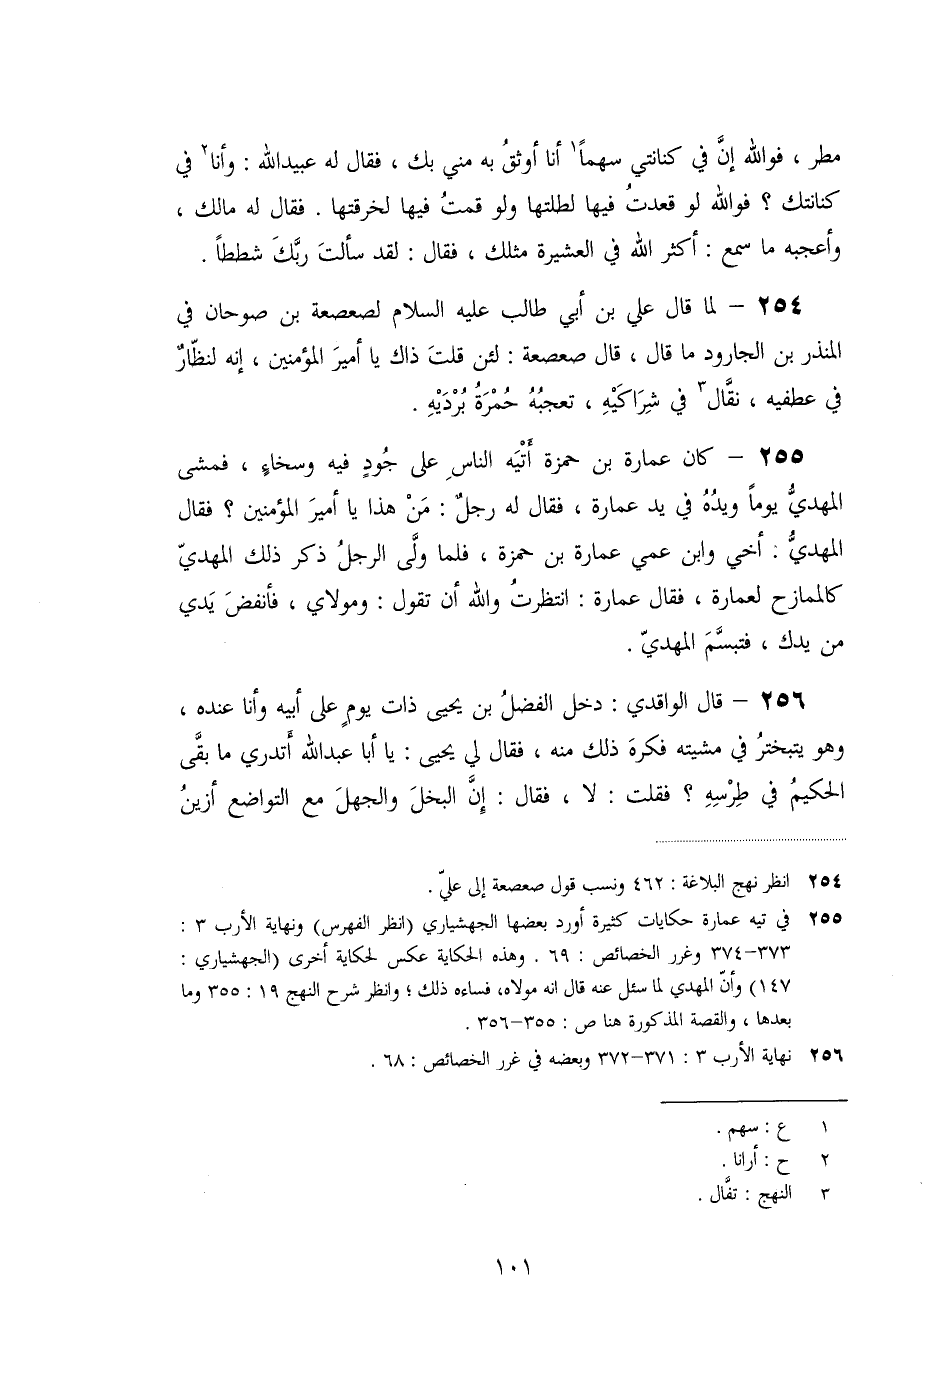 مطر ، فوالله إنَّ في كنانتي سهماً١ أنا أوثقُ به مني بك ، فقال له عبيدالله : وأنا٢ في
كنانتك ؟ فوالله لو قعدتُ فيها لطلتها ولو قمتُ فيها لخرقتها . فقال له مالك ،
وأعجبه ما سمع : أكثر الله في العشيرة مثلك ، فقال : لقد سألتَ ربَّكَ شططاً .
٢٥٤ – لما قال علي بن أبي طالب عليه السلام لصعصعة بن صوحان في
المنذر بن الجارود ما قال ، قال صعصعة : لئن قلتَ ذاك يا أميرَ المؤمنين ، إنه لنظّارٌ
في عطفيه ، نقَّال٣ في شِرَاكَيْهِ ، تعجبُهُ حُمْرَةُ بُرْدَيْهِ .
٢٥٥ – كان عمارة بن حمزة أَتْيَه الناسِ على جُودٍ فيه وسخاءٍ ، فمشى
المهديُّ يوماً ويدُهُ في يد عمارة ، فقال له رجلٌ : مَنْ هذا يا أميرَ المؤمنين ؟ فقال
المهديُّ : أخي وابن عمي عمارة بن حمزة ، فلما ولَّى الرجلُ ذكر ذلك المهديّ
كالممازح لعمارة ، فقال عمارة : انتظرتُ والله أن تقول : ومولاي ، فأنفضَ يَدي
من يدك ، فتبسَّمَ المهديّ .
٢٥٦ – قال الواقدي : دخل الفضلُ بن يحيى ذات يومٍ على أبيه وأنا عنده ،
وهو يتبخترُ في مشيته فكرهَ ذلك منه ، فقال لي يحيى : يا أبا عبدالله أَتدري ما بقَّى
الحكيمُ في طِرْسِهِ ؟ فقلت : لا ، فقال : إنَّ البخلَ والجهلَ مع التواضع أزينُ
٢٥٤ انظر نهج البلاغة : ٤٦٢ ونسب قول صعصعة إلى عليّ .
٢٥٥ في تيه عمارة حكايات كثيرة أورد بعضها الجهشياري (انظر الفهرس) ونهاية الأرب ٣ :
٣٧٣–٣٧٤ وغرر الخصائص : ٦٩ . وهذه الحكاية عكس لحكاية أخرى (الجهشياري :
١٤٧) وأنّ المهدي لما سئل عنه قال انه مولاه، فساءه ذلك ؛ وانظر شرح النهج ١٩ : ٣٥٥ وما
بعدها ، والقصة المذكورة هنا ص : ٣٥٥–٣٥٦ .
٢٥٦ نهاية الأرب ٣ : ٣٧١–٣٧٢ وبعضه في غرر الخصائص : ٦٨ .
١ ع : سهم .
٢ ح : أرانا .
٣ النهج : تفَّال .
١٠١